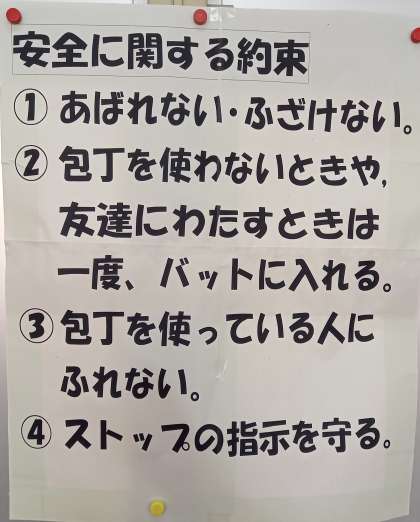 安全に関する約束
① あばれない・ふざけない。
② 包丁を使わないときや,
友達にわたすときは
一度、バットに入れる。
③ 包丁を使っている人に
ふれない。
④ ストップの指示を守る。